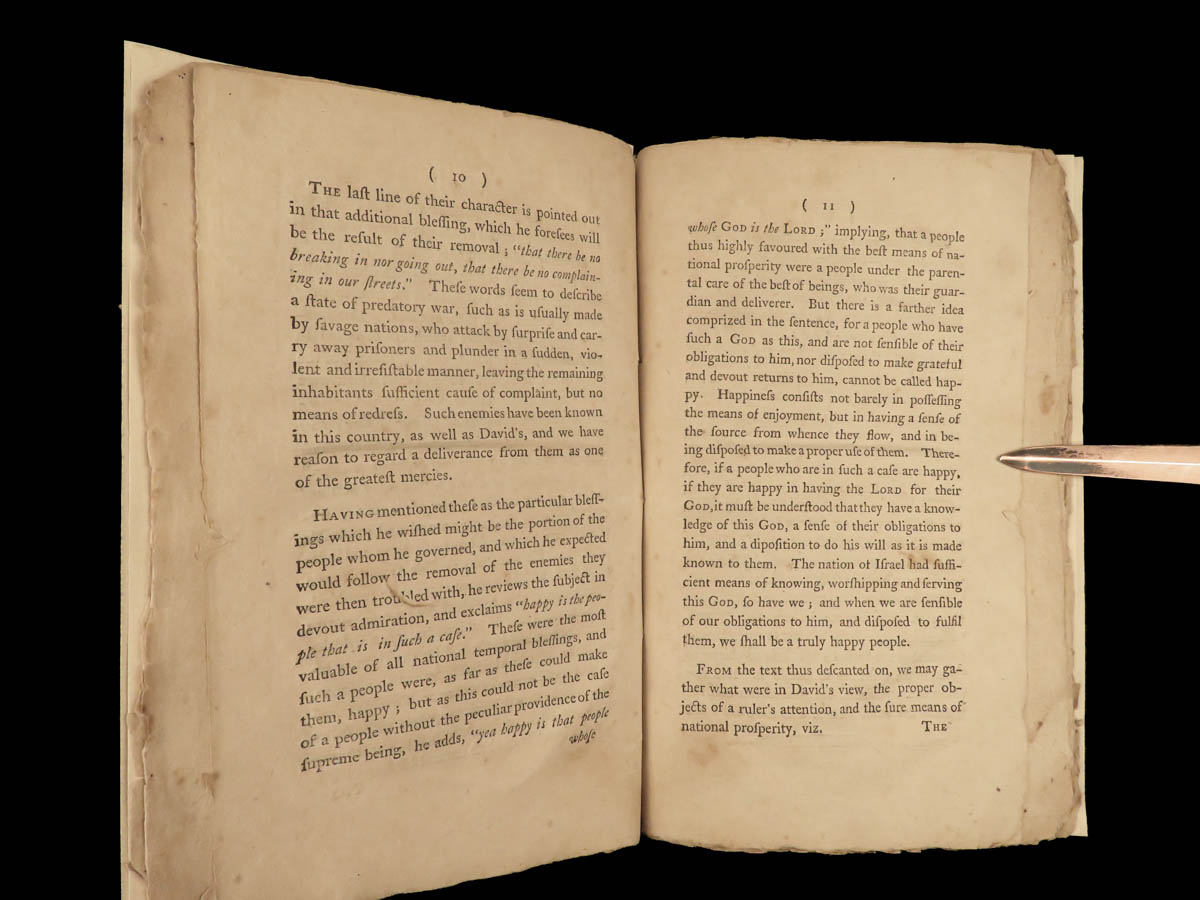 ( 10 )
THE laſt line of their character is pointed out
in that additional bleſſing, which he foreſees will
be the reſult of their removal ; "that there be no
breaking in nor going out, that there be no complain-
ing in our ſtreets." Theſe words ſeem to deſcribe
a ſtate of predatory war, ſuch as is uſually made
by ſavage nations, who attack by ſurpriſe and car-
ry away priſoners and plunder in a ſudden, vio-
lent and irreſiſtable manner, leaving the remaining
inhabitants ſufficient cauſe of complaint, but no
means of redreſs. Such enemies have been known
in this country, as well as David's, and we have
reaſon to regard a deliverance from them as one
of the greateſt mercies.
HAVING mentioned theſe as the particular bleſſ-
ings which he wiſhed might be the portion of the
people whom he governed, and which he expected
would follow the removal of the enemies they
were then troubled with, he reviews the ſubject in
devout admiration, and exclaims "happy is the peo-
ple that is in ſuch a caſe." Theſe were the moſt
valuable of all national temporal bleſſings, and
ſuch a people were, as far as theſe could make
them, happy ; but as this could not be the caſe
of a people without the peculiar providence of the
ſupreme being, he adds, "yea happy is that people
whoſe
( 11 )
whoſe GOD is the LORD ;" implying, that a people
thus highly favoured with the beſt means of na-
tional proſperity were a people under the paren-
tal care of the beſt of beings, who was their guar-
dian and deliverer. But there is a farther idea
comprized in the ſentence, for a people who have
ſuch a GOD as this, and are not ſenſible of their
obligations to him, nor diſpoſed to make grateful
and devout returns to him, cannot be called hap-
py. Happineſs conſiſts not barely in poſſeſſing
the means of enjoyment, but in having a ſenſe of
the ſource from whence they flow, and in be-
ing diſpoſed to make a proper uſe of them. There-
fore, if a people who are in ſuch a caſe are happy,
if they are happy in having the LORD for their
GOD, it muſt be underſtood that they have a know-
ledge of this GOD, a ſenſe of their obligations to
him, and a dipoſition to do his will as it is made
known to them. The nation of Iſrael had ſuffi-
cient means of knowing, worſhipping and ſerving
this GOD, ſo have we ; and when we are ſenſible
of our obligations to him, and diſpoſed to fulfil
them, we ſhall be a truly happy people.
FROM the text thus deſcanted on, we may ga-
ther what were in David's view, the proper ob-
jects of a ruler's attention, and the ſure means of
national proſperity, viz. THE